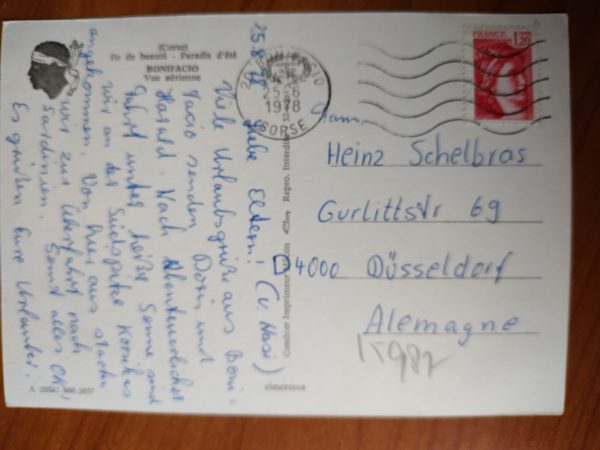 (Corse)
Ile de beauté - Paradis d'été
BONIFACIO
Vue aérienne
25.8.78
Liebe Eltern! (u. Hasi)
Viele Urlaubsgrüße aus Boni=
facio senden Doris und
Harald. Nach abenteuerlicher
Fahrt unter heißer Sonne sind
wir an der Südspitze Korsikas
angekommen. Von hier aus starten
wir zur Überfahrt nach
Sardinien. Sonst alles OK,
Es grüßen Eure Urlauber.
A 20041 006 1051
Combier Imprimeur Mâcon
Repro. Interdite
20 BONIFACIO
25-8
1978
CORSE
FRANCE
1,20
Fam.
Heinz Schelbras
Gurlittstr 69
D 4000 Düsseldorf
Alemagne